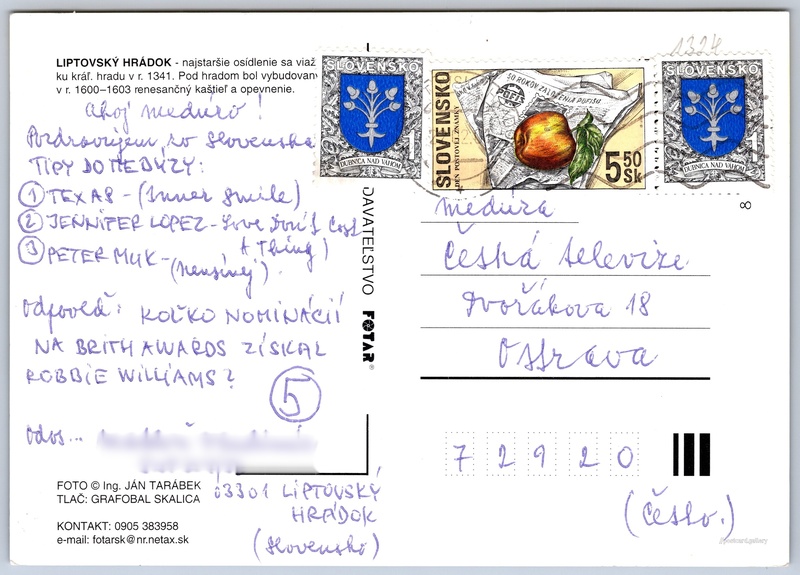 LIPTOVSKÝ HRÁDOK - najstaršie osídlenie sa viaž
ku kráľ. hradu v r. 1341. Pod hradom bol vybudovan
v r. 1600–1603 renesančný kaštieľ a opevnenie.
Ahoj medúzo!
Pozdravujem zo Slovenska
TIPY DO MEDÚZY:
1 TEXAS - (Inner Smile)
2 JENNIFER LOPEZ - Love Don't Cost
A Thing)
3 PETER MUK -
Odpověď: KOĽKO NOMINÁCIÍ
NA BRITH AWARDS ZÍSKAL
ROBBIE WILLIAMS?
5
Odos...
03301 LIPTOVSKÝ
HRÁDOK
(Slovensko)
FOTO © Ing. JÁN TARÁBEK
TLAČ: GRAFOBAL SKALICA
KONTAKT: 0905 383958
e-mail: fotarsk@nr.netax.sk
DAVATEĽSTVO FOTAR®
SLOVENSKO
1
DUBNICA NAD VÁHOM
SLOVENSKO
DEŇ POŠTOVEJ ZNÁMKY
50 ROKOV ZALOŽENIA POFISU
POFIS
5 50
Sk
SLOVENSKO
1
DUBNICA NAD VÁHOM
1324
8
Medúza
Česká televize
Dvořákova 18
Ostrava
72920
(Česko.)
postcard.gallery